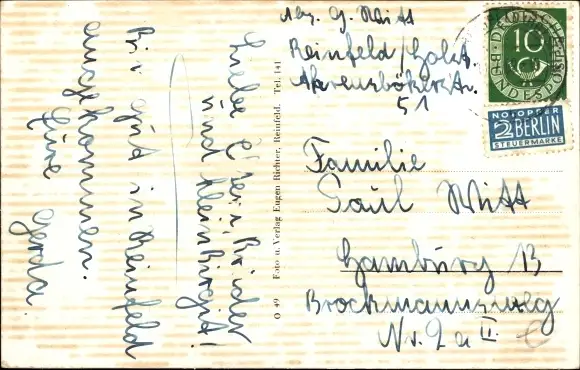 Abz. G. Witt
Reinfeld/Holst.
Ahrensbökerstr.
51
Familie
Paul Witt
Hamburg 13
Brockmannsweg
Nr. 2a II.
Liebe Eltern, Brüder
und klein Birgit!
Bin gut in Reinfeld
angekommen.
Eure Gerda
O 49 Foto u. Verlag Eugen Richter, Reinfeld. Tel. 141
DEUTSCHE BUNDESPOST
10
NOTOPFER
2 BERLIN
STEUERMARKE